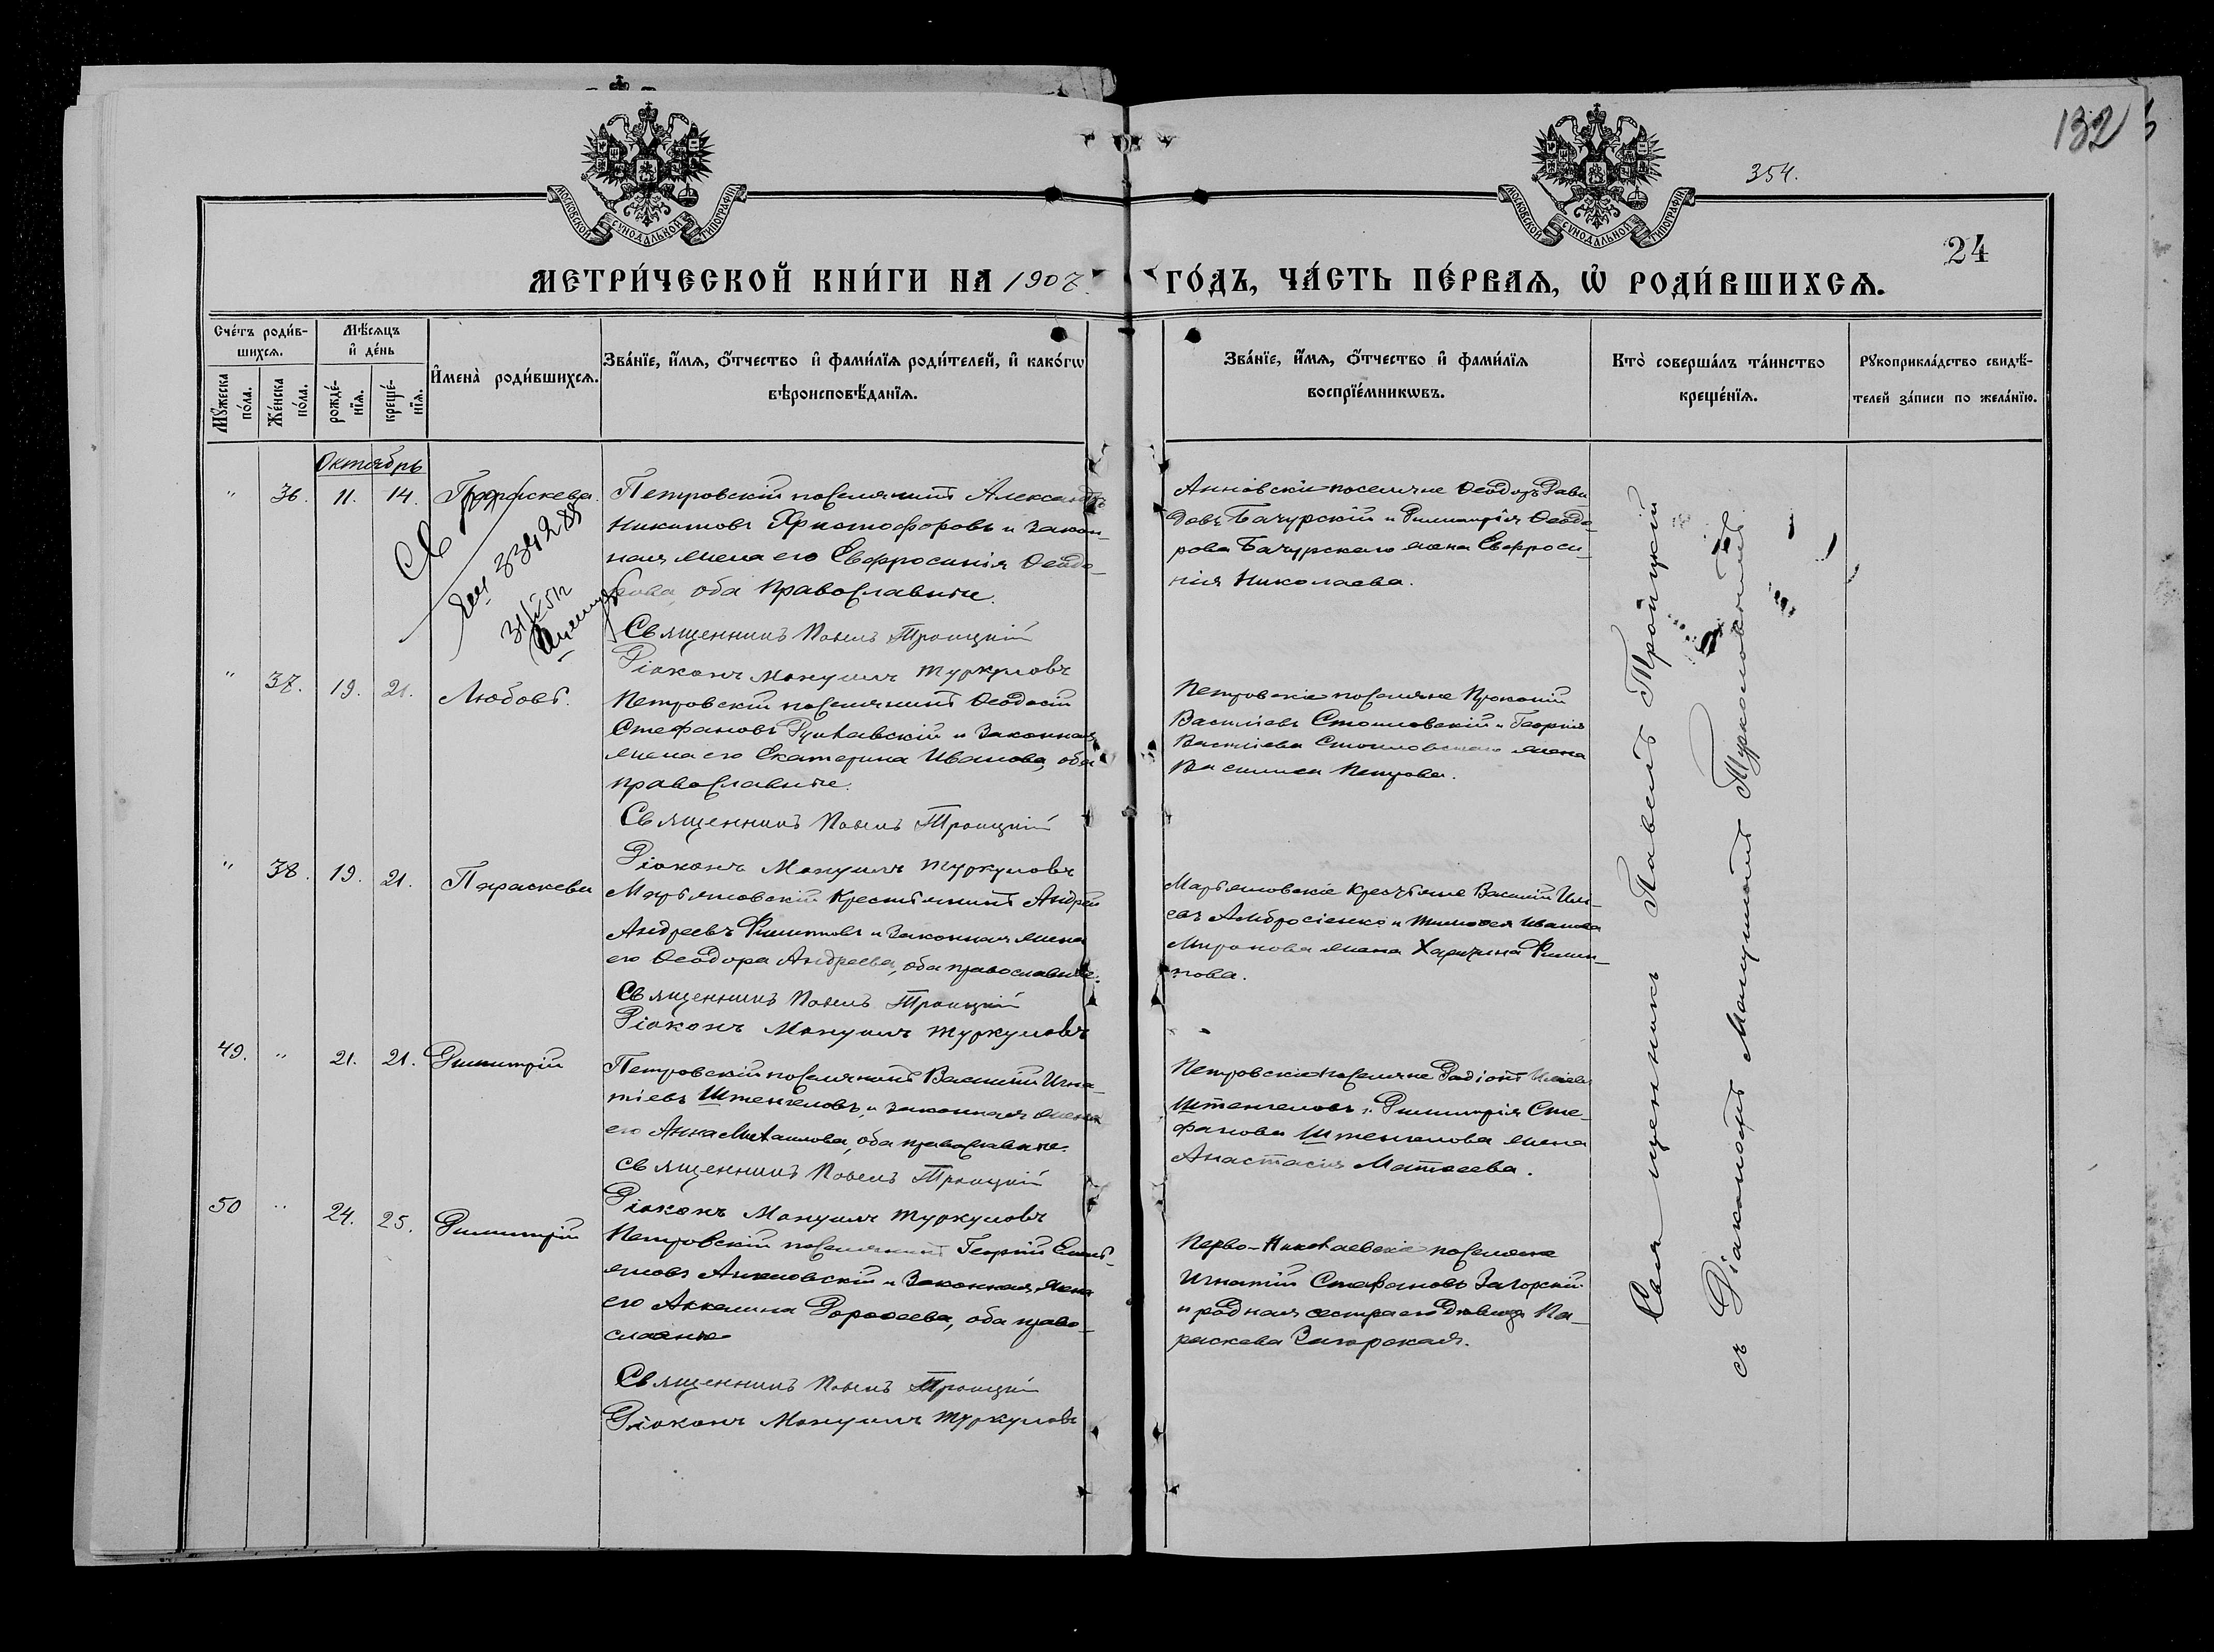 132
354.
24
МОСКОВСКОЙ СѴНОДАЛЬНОЙ ТИПОГРАФІИ
МОСКОВСКОЙ СѴНОДАЛЬНОЙ ТИПОГРАФІИ
МЕТРИ́ЧЕСКОЙ КНИ́ГИ НА 1907 ГО́ДЪ, ЧА́СТЬ ПЕ́РВАѦ, Ѽ РОДИ́ВШИХСѦ.
Сче́тъ роди́в-
шихсѧ.
Мꙋ́жеска по́ла.
Же́нска по́ла.
Мѣ́сѧцъ
и҆ де́нь
рожде́-
нїѧ.
креще́-
нїѧ.
И҆мена̀ роди́вшихсѧ.
Зва́нїе, и҆́мѧ, ѻ҆́тчество и҆ фами́лїѧ роди́телей, и҆ како́гѡ
вѣроисповѣ́данїѧ.
Зва́нїе, и҆́мѧ, ѻ҆́тчество и҆ фами́лїѧ
воспрїе́мникѡвъ.
Кто̀ соверша́лъ та́инство
креще́нїѧ.
Рꙋкоприкла́дство свидѣ́-
телей за́писи по жела́нїю.
Октябрь
" 36. 11. 14. Параскева.
Петровскій поселянинъ Александръ
Никитовъ Христофоровъ и закон-
ная жена его Евфросинія Ѳеодо-
рова, оба православные.
Священникъ Павелъ Троицкій
Діаконъ Мануилъ Туркуловъ
Анновскіе поселяне Ѳеодоръ Дави
довъ Бачурскій и Димитрія Ѳеодо-
рова Бачурскаго жена Евфроси-
нія Николаева.
" 37. 19. 21. Любовь.
Петровскій поселянинъ Ѳеодосій
Стефановъ и законная
жена его Екатерина Иванова, оба
православные.
Священникъ Павелъ Троицкій
Діаконъ Мануилъ Туркуловъ
Петровскіе поселяне Прокопій
Василіевъ Стоиловскій и Георгія
Василіева Стоиловскаго жена
Василиса Петрова.
" 38. 19. 21. Параскева
Марьяновскій крестьянинъ Андрей
Андреевъ Филиповъ и законная жена
его Ѳеодора Андреева, оба православные.
Священникъ Павелъ Троицкій
Діаконъ Мануилъ Туркуловъ
Марьяновскіе крестьяне Василій Иль-
евъ Амбросіенко и Тимоѳея Иванова
Миронова жена Харитина Филип-
пова.
49. " 21. 21. Димитрій
Петровскій поселянинъ Василій Игна-
тіевъ Штенгеловъ, и законная жена
его Анна Михаилова, оба православные.
Священникъ Павелъ Троицкій
Діаконъ Мануилъ Туркуловъ
Петровскіе поселяне Радіонъ
Штенгеловъ и Димитрія Сте-
фанова Штенгелова жена
Анастасія Матѳеева.
50 " 24. 25. Димитрій
Петровскій поселянинъ Георгій Емель-
яновъ и законная жена
его Акилина Дороѳеева, оба право-
славные
Священникъ Павелъ Троицкій
Діаконъ Мануилъ Туркуловъ
Перво-Николаевскіе поселяне
Игнатій Стефановъ Загорскій
и родная сестра его дѣвица Па-
раскева Загорская.
Священникъ Павелъ Троицкій
съ Діакономъ Мануиломъ Туркуловымъ